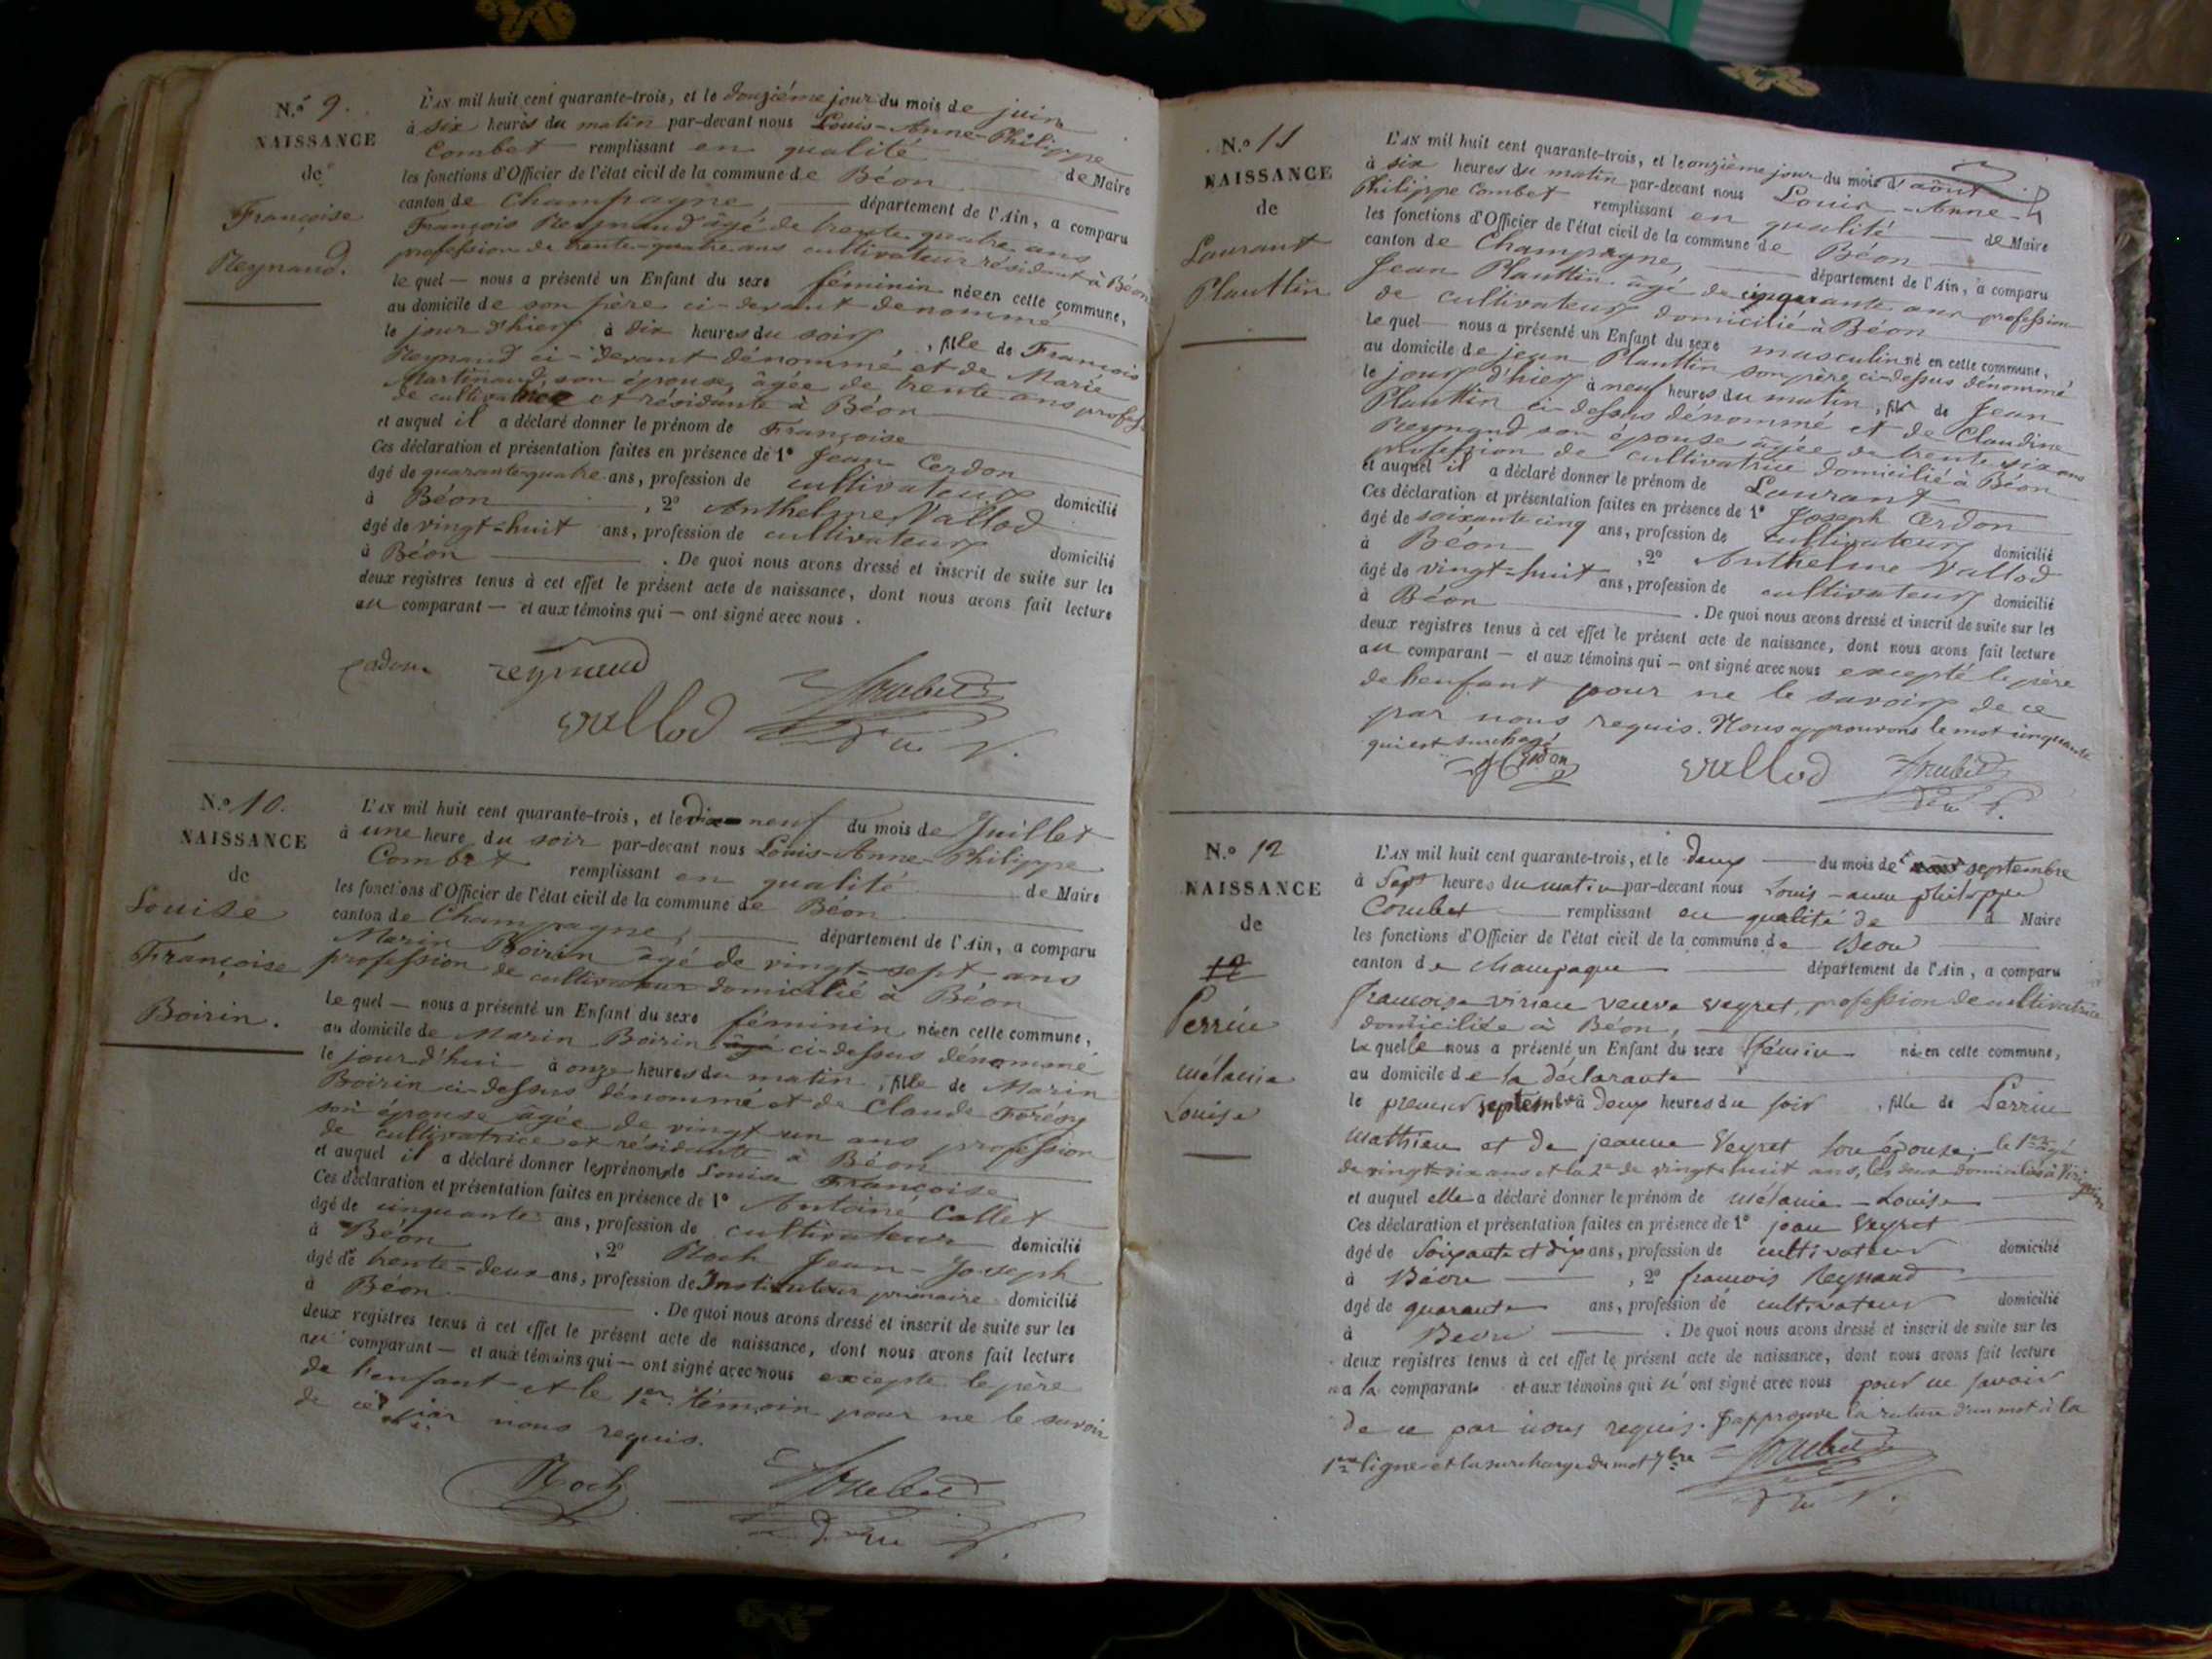 N.º 9.
NAISSANCE
de
Françoise
Reynaud.
L'AN mil huit cent quarante-trois, et le douzième jour du mois de juin
à six heures du matin par-devant nous Louis-Anne-Philippe
Combet remplissant en qualité de Maire
les fonctions d'Officier de l'état civil de la commune de Béon
canton de Champagne, département de l'Ain, a comparu
François Reynaud âgé de trente quatre ans
profession de trente-quatre ans cultivateur résidant à Béon
le quel — nous a présenté un Enfant du sexe féminin née en cette commune,
au domicile de son père ci-devant dénommé
le jour d'hier à six heures du soir, fille de François
Reynaud ci-devant dénommé et de Marie
Martinaud, son épouse, âgée de trente ans profess
de cultivatrice et résidante à Béon
et auquel il a déclaré donner le prénom de Françoise
Ces déclaration et présentation faites en présence de 1º Jean Cerdon
âgé de quarante quatre ans, profession de cultivateur domicilié
à Béon, 2º Anthelme Vallod
âgé de vingt-huit ans, profession de cultivateur domicilié
à Béon. De quoi nous avons dressé et inscrit de suite sur les
deux registres tenus à cet effet le présent acte de naissance, dont nous avons fait lecture
au comparant — et aux témoins qui — ont signé avec nous.
reynaud
vallod
N.º 10.
NAISSANCE
de
Louise
Françoise
Boirin.
L'AN mil huit cent quarante-trois, et le Dix neuf du mois de Juillet
à une heure du soir par-devant nous Louis-Anne-Philippe
Combet remplissant en qualité de Maire
les fonctions d'Officier de l'état civil de la commune de Béon
canton de Champagne, département de l'Ain, a comparu
Marin Boirin âgé de vingt-sept ans
profession de cultivateur domicilié à Béon
le quel — nous a présenté un Enfant du sexe féminin née en cette commune,
au domicile de Marin Boirin âgé ci-dessus dénommé
le jour d'hui à onze heures du matin, fille de Marin
Boirin ci-dessus dénommé et de Claude Forésy
son épouse âgée de vingt un ans profession
de cultivatrice et résidante à Béon
et auquel il a déclaré donner les prénoms de Louise Françoise
Ces déclaration et présentation faites en présence de 1º Antoine Collet
âgé de cinquante ans, profession de cultivateur domicilié
à Béon, 2º Roch Jean-Joseph
âgé de trente-deux ans, profession de Instituteur primaire domicilié
à Béon. De quoi nous avons dressé et inscrit de suite sur les
deux registres tenus à cet effet le présent acte de naissance, dont nous avons fait lecture
au comparant — et aux témoins qui — ont signé avec nous excepté le père
de l'enfant et le 1er témoin pour ne le savoir
de ce par nous requis.
Roch
N.º 11
NAISSANCE
de
Laurant
Plauttin
L'AN mil huit cent quarante-trois, et le onzième jour du mois d'août
à six heures du matin par-devant nous Louis-Anne-
Philippe Combet remplissant en qualité de Maire
les fonctions d'Officier de l'état civil de la commune de Béon
canton de Champagne, département de l'Ain, a comparu
Jean Plauttin âgé de cinquante ans profession
de cultivateur domicilié à Béon
le quel — nous a présenté un Enfant du sexe masculin né en cette commune,
au domicile de jean Plauttin son père ci-dessus dénommé
le jour d'hier à neuf heures du matin, fils de Jean
Plauttin ci-dessus dénommé et de Claudine
Reynaud son épouse âgée de trente six ans
profession de cultivatrice domicilié à Béon
et auquel il a déclaré donner le prénom de Laurant
Ces déclaration et présentation faites en présence de 1º Joseph Cerdon
âgé de soixante cinq ans, profession de cultivateur domicilié
à Béon, 2º Anthelme Vallod
âgé de vingt-huit ans, profession de cultivateur domicilié
à Béon. De quoi nous avons dressé et inscrit de suite sur les
deux registres tenus à cet effet le présent acte de naissance, dont nous avons fait lecture
au comparant — et aux témoins qui — ont signé avec nous excepté le père
de l'enfant pour ne le savoir de ce
par nous requis. Nous approuvons le mot cinquante
qui est surchargé
vallod
N.º 12
NAISSANCE
de
12
Perrin
mélanie
Louise
L'AN mil huit cent quarante-trois, et le deux du mois de septembre
à Sept heures du matin par-devant nous Louis-anne philippe
Combet remplissant en qualité de à Maire
les fonctions d'Officier de l'état civil de la commune de Béon
canton de Champagne département de l'Ain, a comparu
françoise virieu veuve veyret, profession de cultivatrice
domiciliée à Béon,
la quelle nous a présenté un Enfant du sexe féminin né en cette commune,
au domicile de la déclarante
le premier septembre à deux heures du soir, fille de Perrin
Mathieu et de jeanne Veyret son épouse, le 1er âgé
de vingt-six ans et la 2e de vingt-huit ans, les deux domiciliés à Virignin
et auquel elle a déclaré donner le prénom de mélanie-Louise
Ces déclaration et présentation faites en présence de 1º jean Veyret
âgé de Soixante et dix ans, profession de cultivateur domicilié
à Béon, 2º françois Reynaud
âgé de quarante ans, profession de cultivateur domicilié
à Béon. De quoi nous avons dressé et inscrit de suite sur les
deux registres tenus à cet effet le présent acte de naissance, dont nous avons fait lecture
a la comparante et aux témoins qui n'ont signé avec nous pour ne savoir
de ce par nous requis. J'approuve la rature d'un mot à la
1ère ligne et la surcharge du mot 7bre